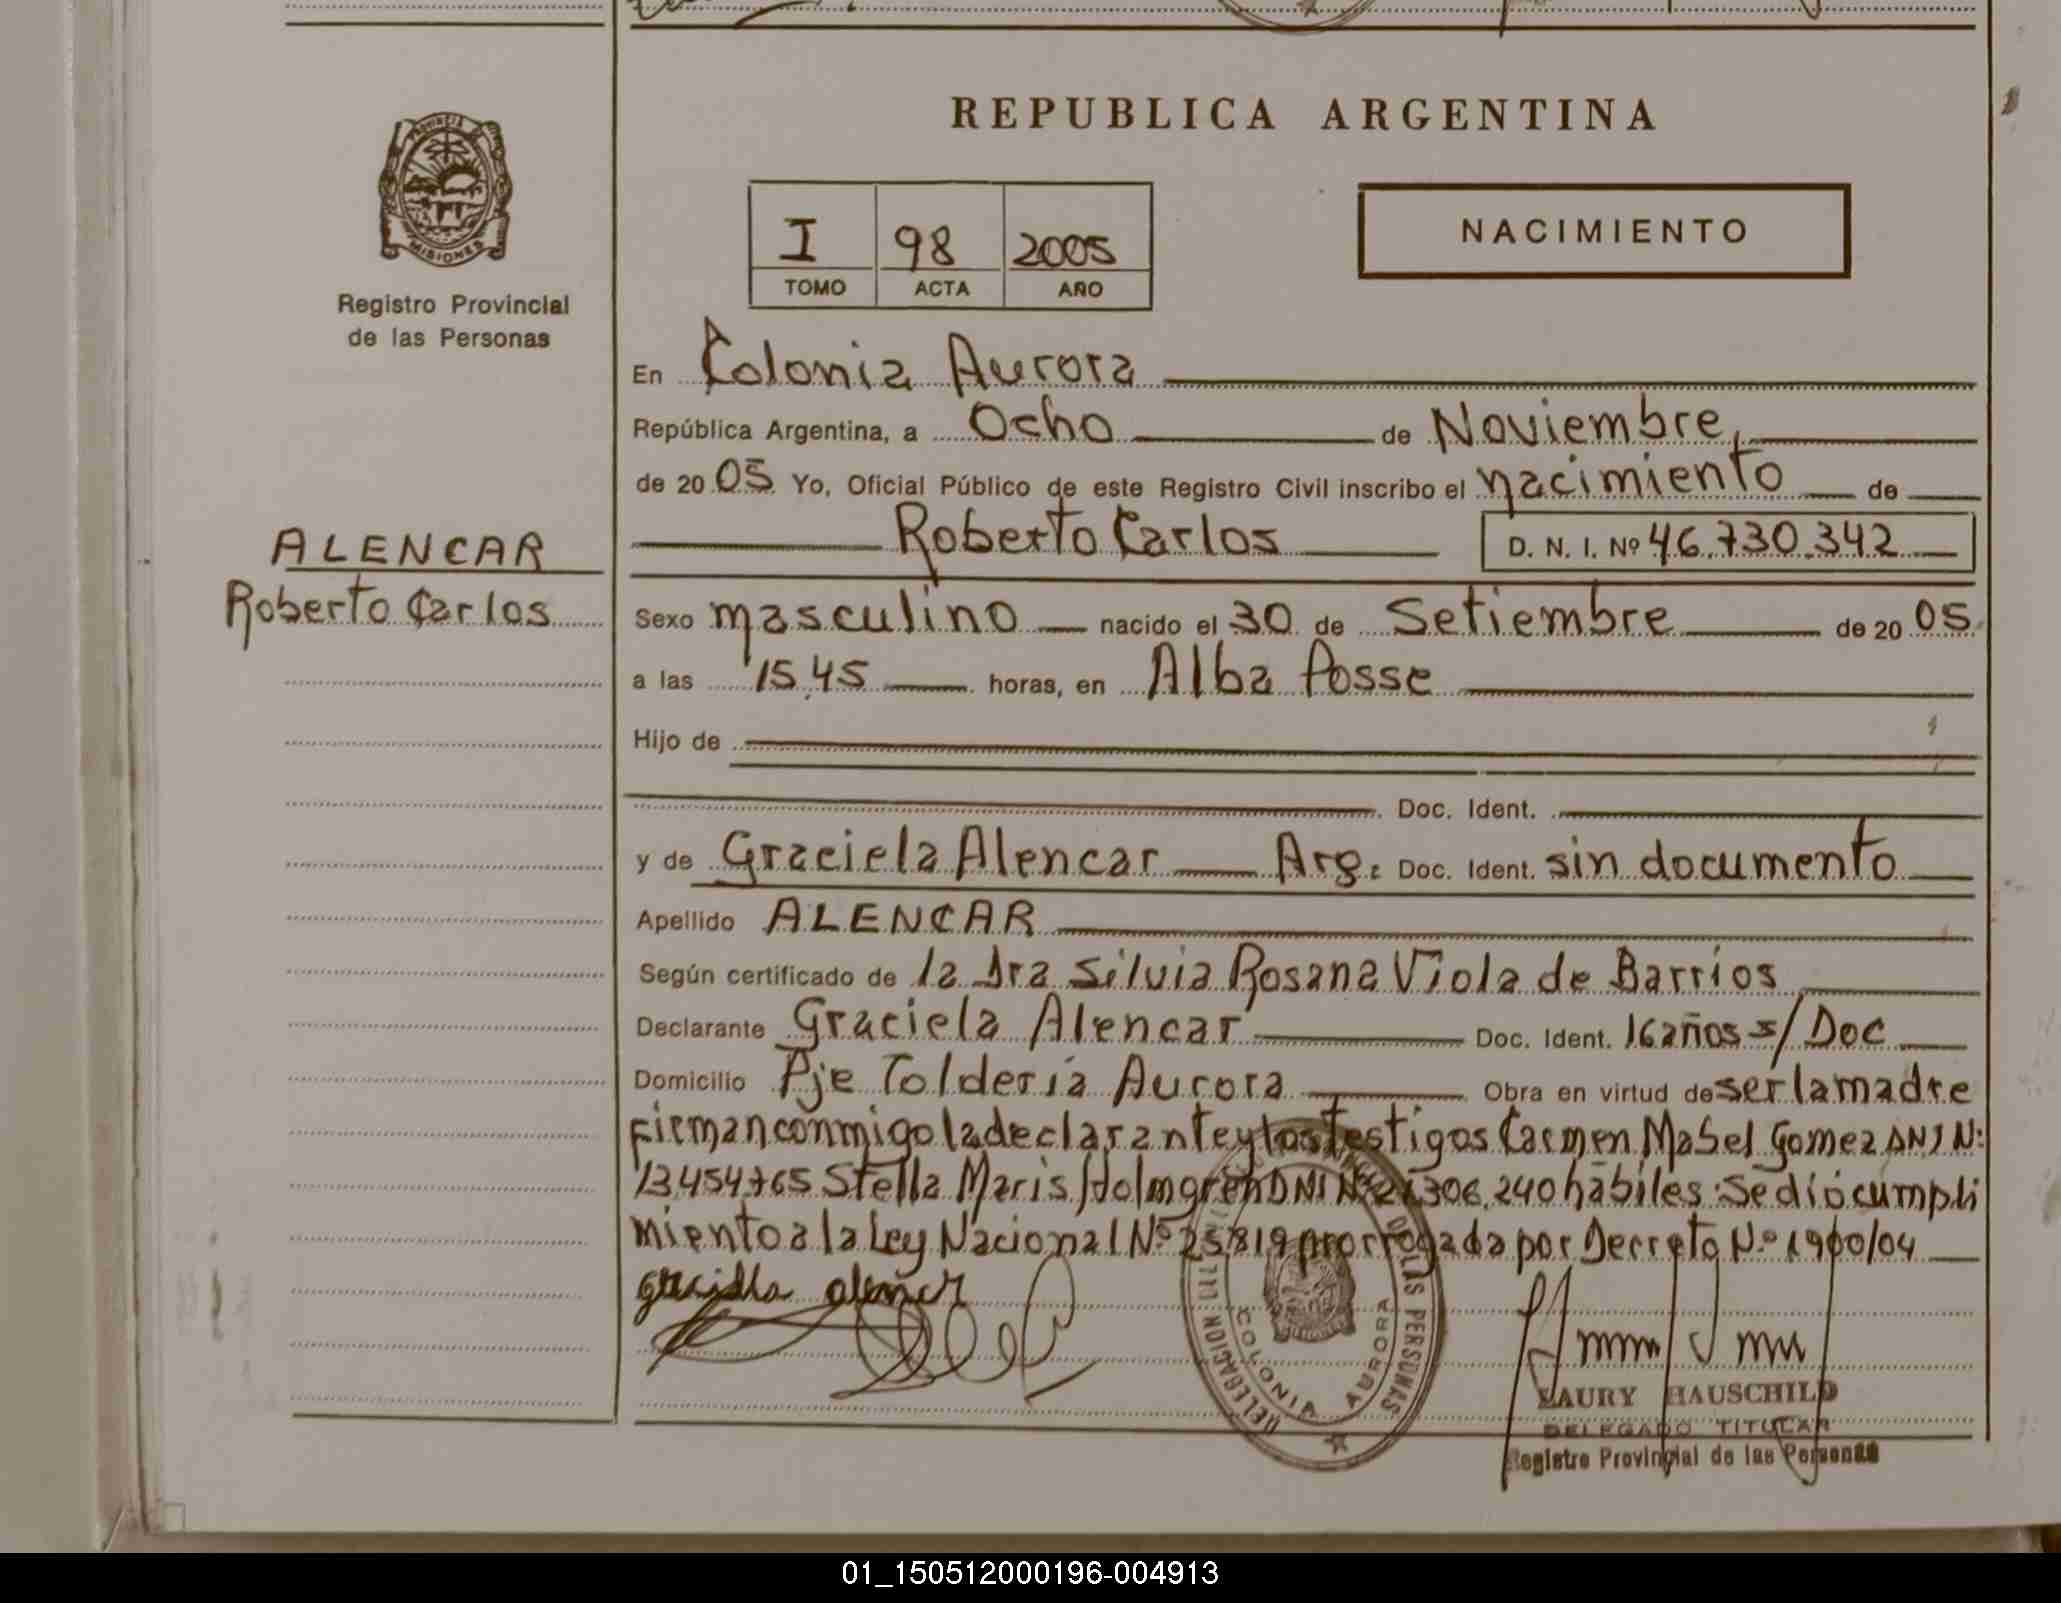 REPUBLICA ARGENTINA
PROVINCIA DE
MISIONES
Registro Provincial
de las Personas
I 98 2005
TOMO ACTA AÑO
NACIMIENTO
En Colonia Aurora
República Argentina, a Ocho de Noviembre,
de 20 05 Yo, Oficial Público de este Registro Civil inscribo el nacimiento de
Roberto Carlos D. N. I. Nº 46.730.342
ALENCAR
Roberto Carlos
Sexo masculino nacido el 30 de Setiembre de 20 05
a las 15,45 horas, en Alba Posse
Hijo de
Doc. Ident.
y de Graciela Alencar Arg: Doc. Ident. sin documento
Apellido ALENCAR
Según certificado de la Dra Silvia Rosana Viola de Barrios
Declarante Graciela Alencar Doc. Ident. 16 años s/Doc
Domicilio Pje Tolderia Aurora Obra en virtud de ser la madre
Firman conmigo la declarante y los testigos Carmen Mabel Gomez DNI N:
13.454.765 Stella Maris Holmgren DNI Nº 21.306.240 hábiles: Se dió cumpli
miento a la Ley Nacional Nº 25819 prorrogada por Decreto Nº 1900/04
DELEGACION DE LAS PERSONAS
COLONIA AURORA
LAURY HAUSCHILD
DELEGADO TITULAR
Registro Provincial de las Personas
01_150512000196-004913